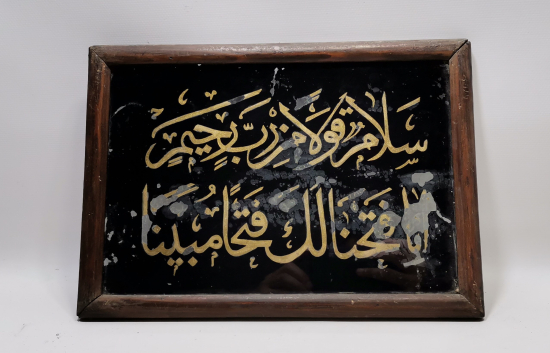 سلام قولا من رب رحيم
انا فتحنا لك فتحا مبينا